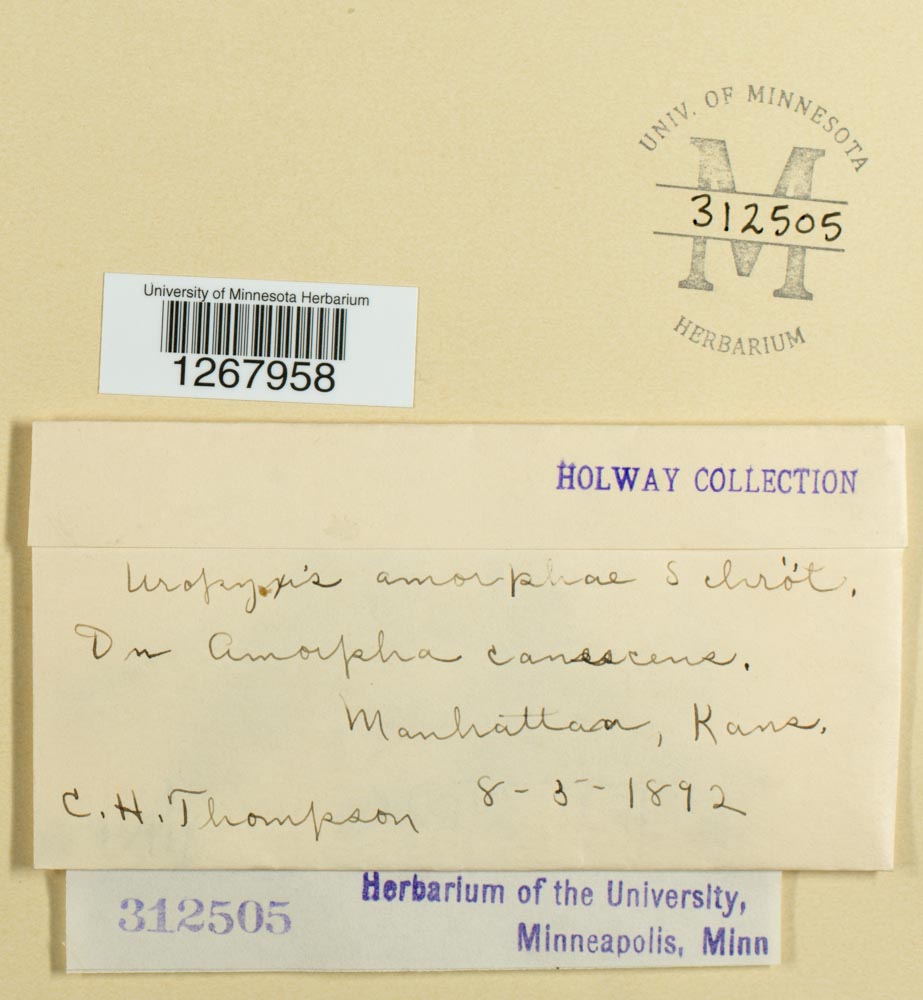 UNIV. OF MINNESOTA
312505
HERBARIUM
University of Minnesota Herbarium
1267958
HOLWAY COLLECTION
Uropyxis amorphae Schröt.
On Amorpha canescens.
Manhattan, Kans.
C. H. Thompson 8-5-1892
312505
Herbarium of the University,
Minneapolis, Minn